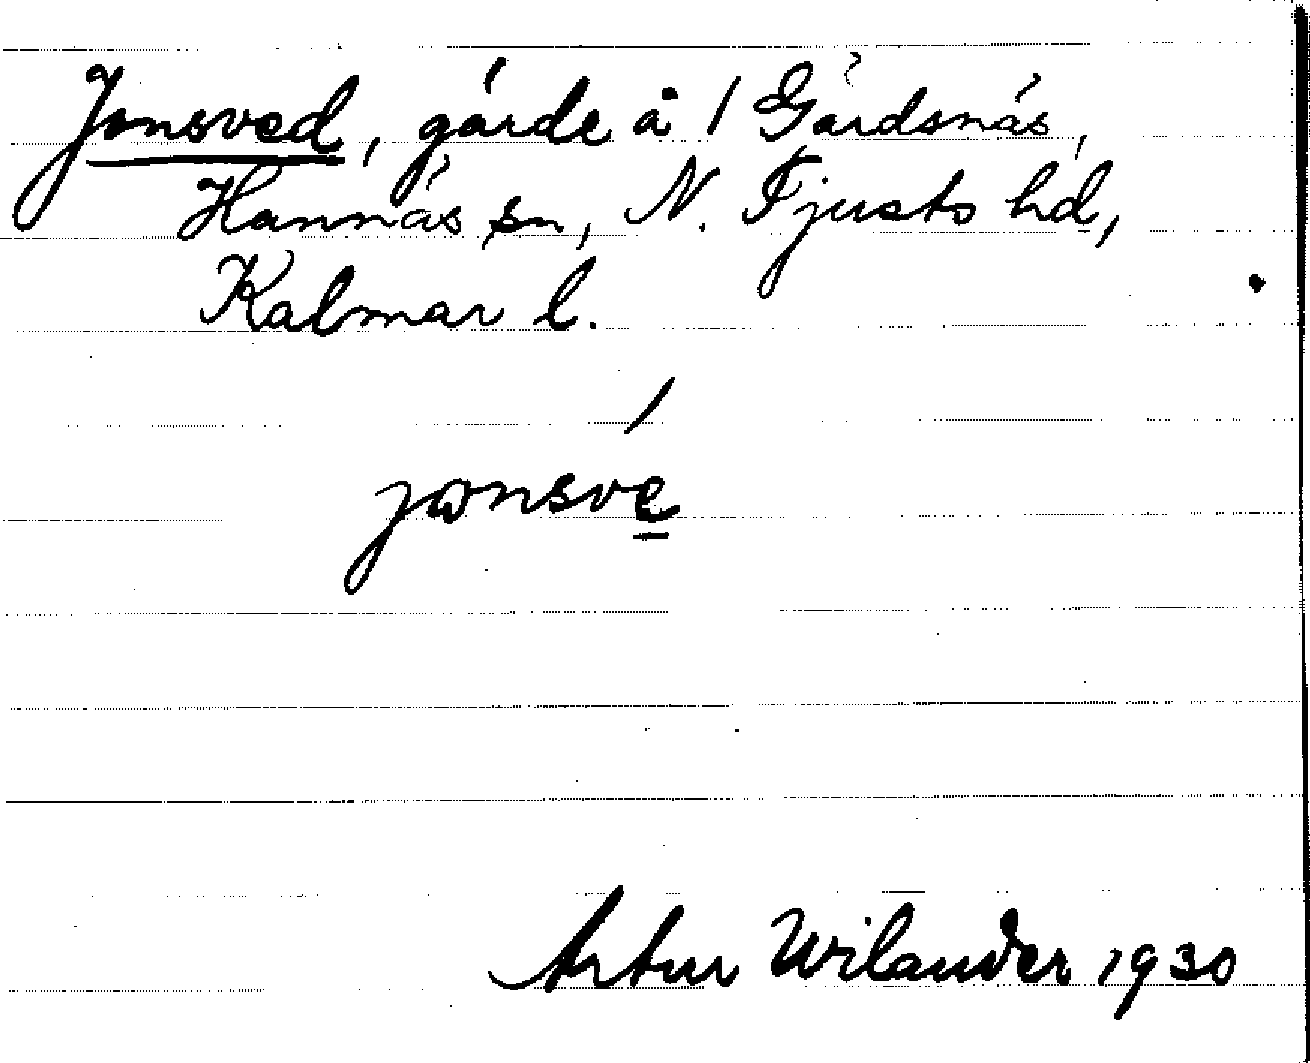 Jonsved, gärde å 1 Gärdsnäs,
Hannäs sn, N. Tjusts hd,
Kalmar l.
/
jonsve
Artur Wilander 1930